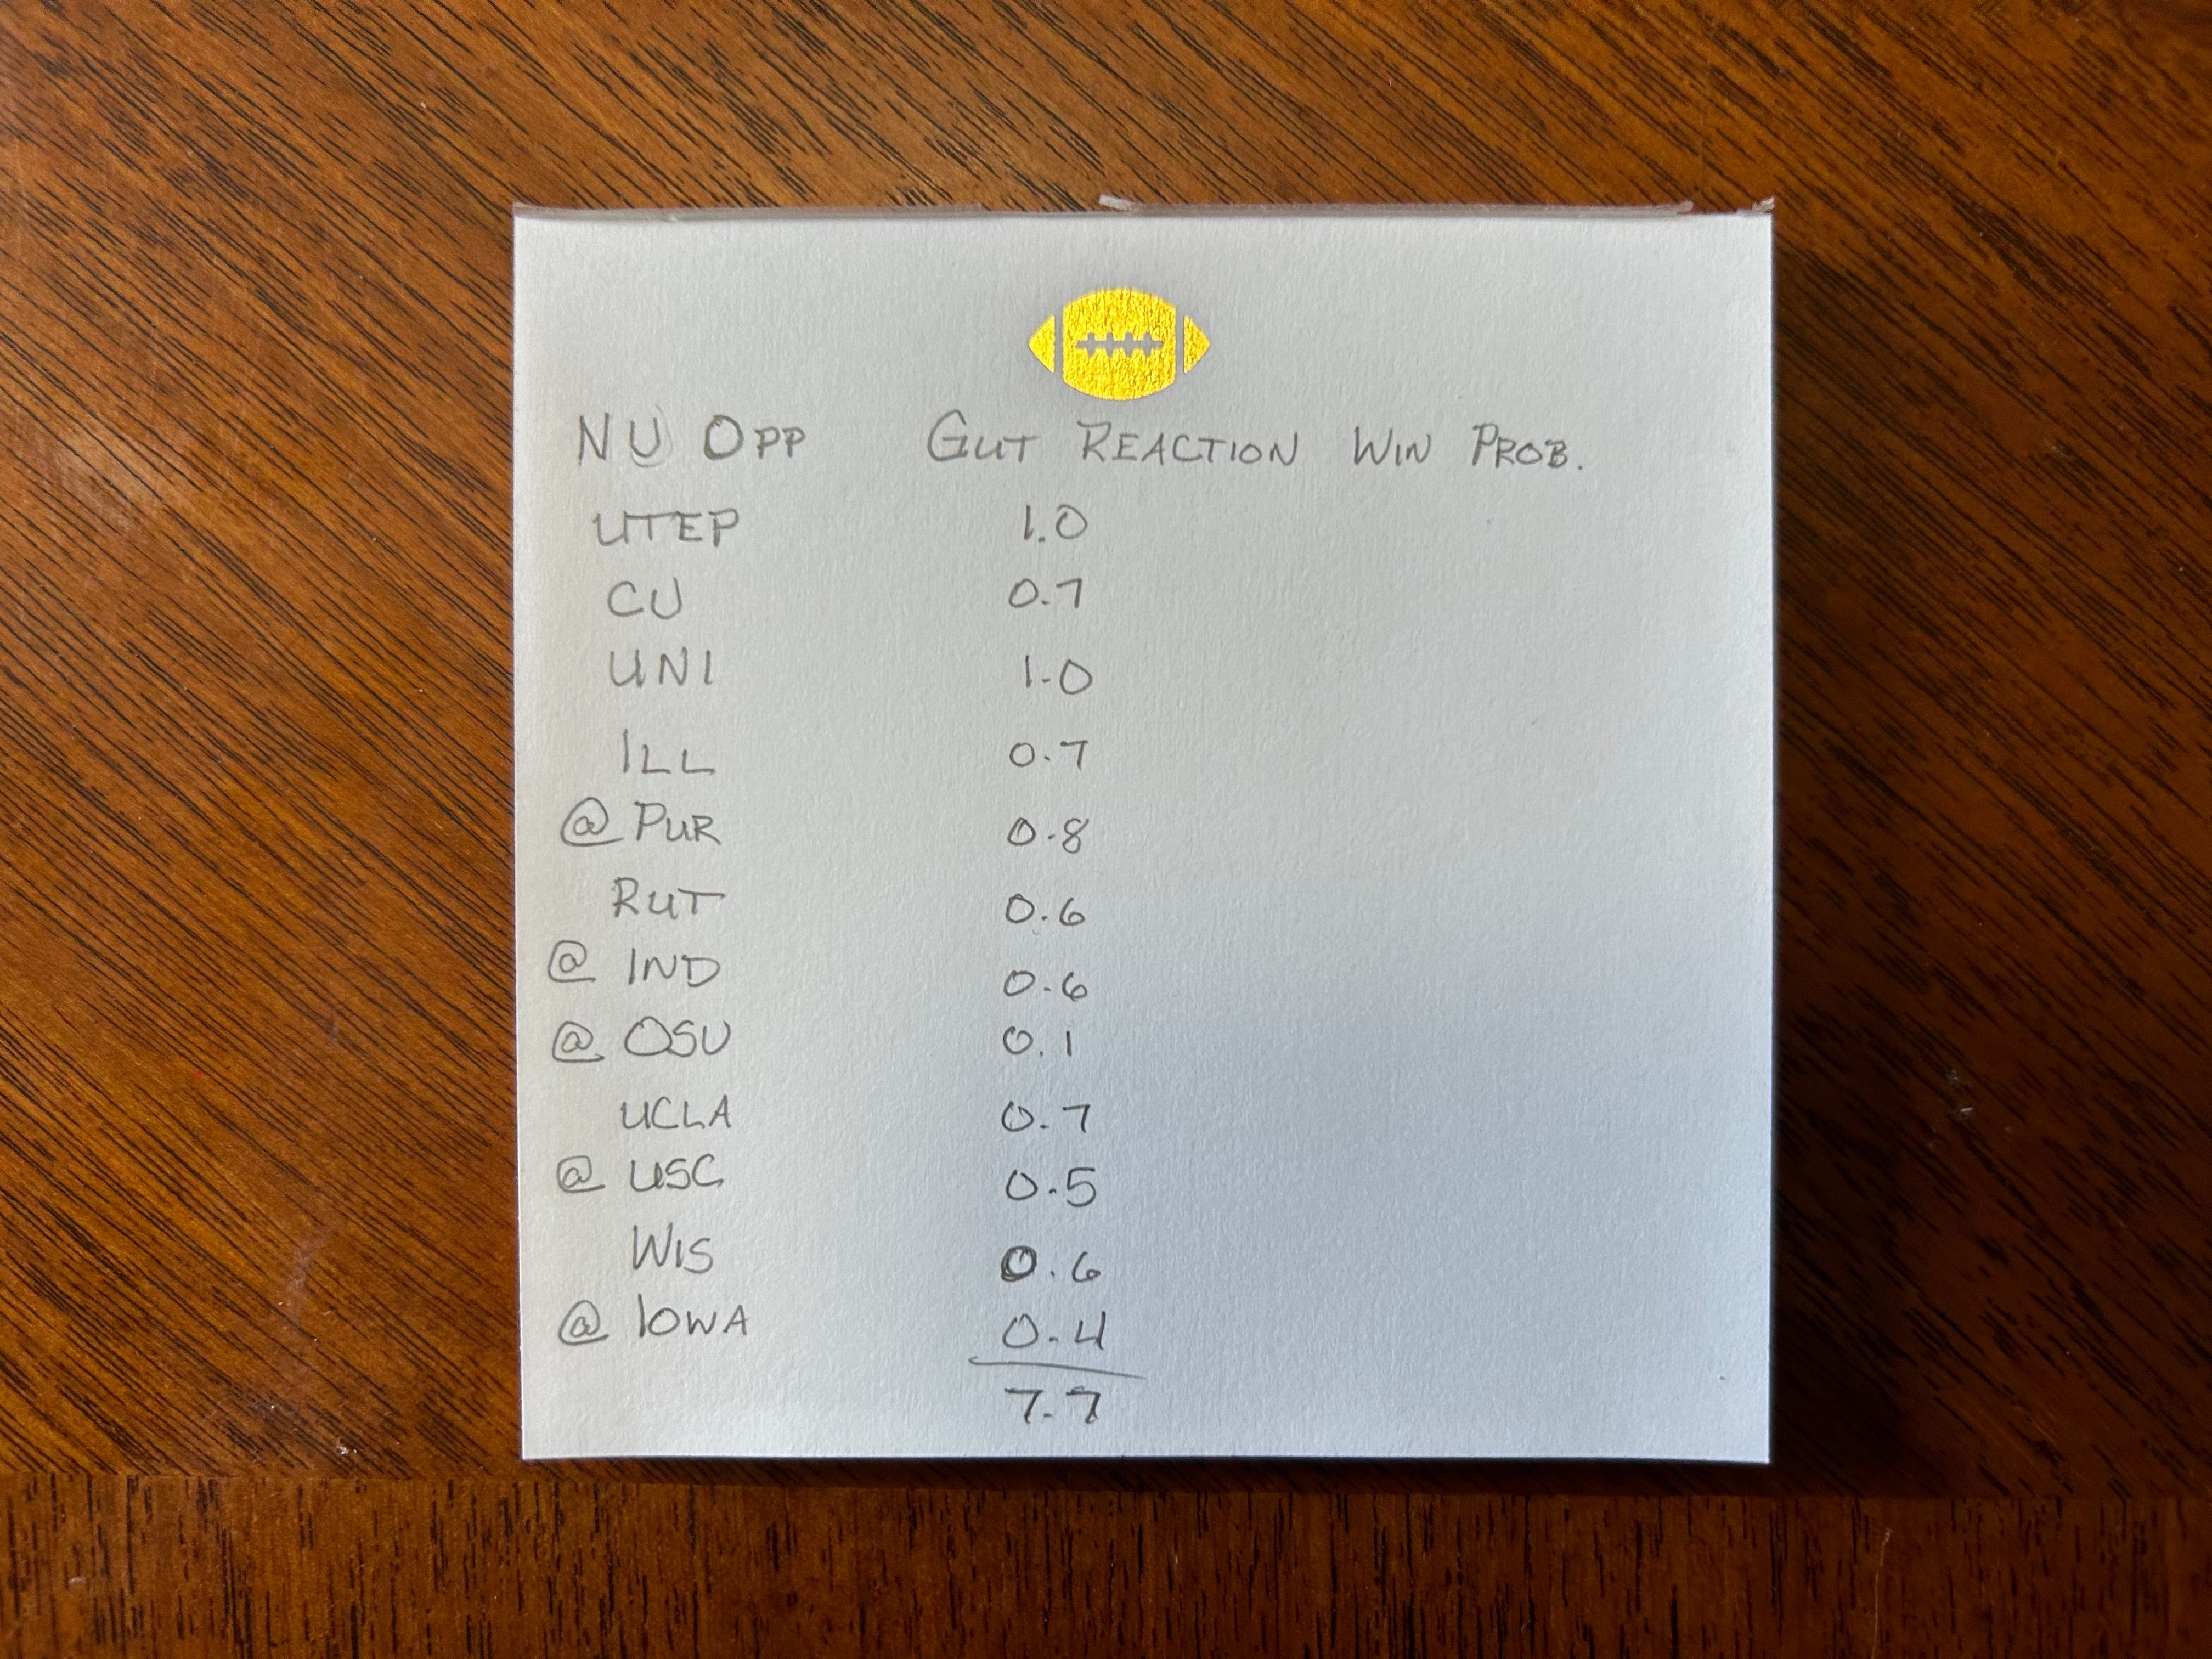 NU OPP GUT REACTION WIN PROB.
UTEP 1.0
CU 0.7
UNI 1.0
ILL 0.7
@ PUR 0.8
RUT 0.6
@ IND 0.6
@ OSU 0.1
UCLA 0.7
@ USC 0.5
WIS 0.6
@ IOWA 0.4
7.7